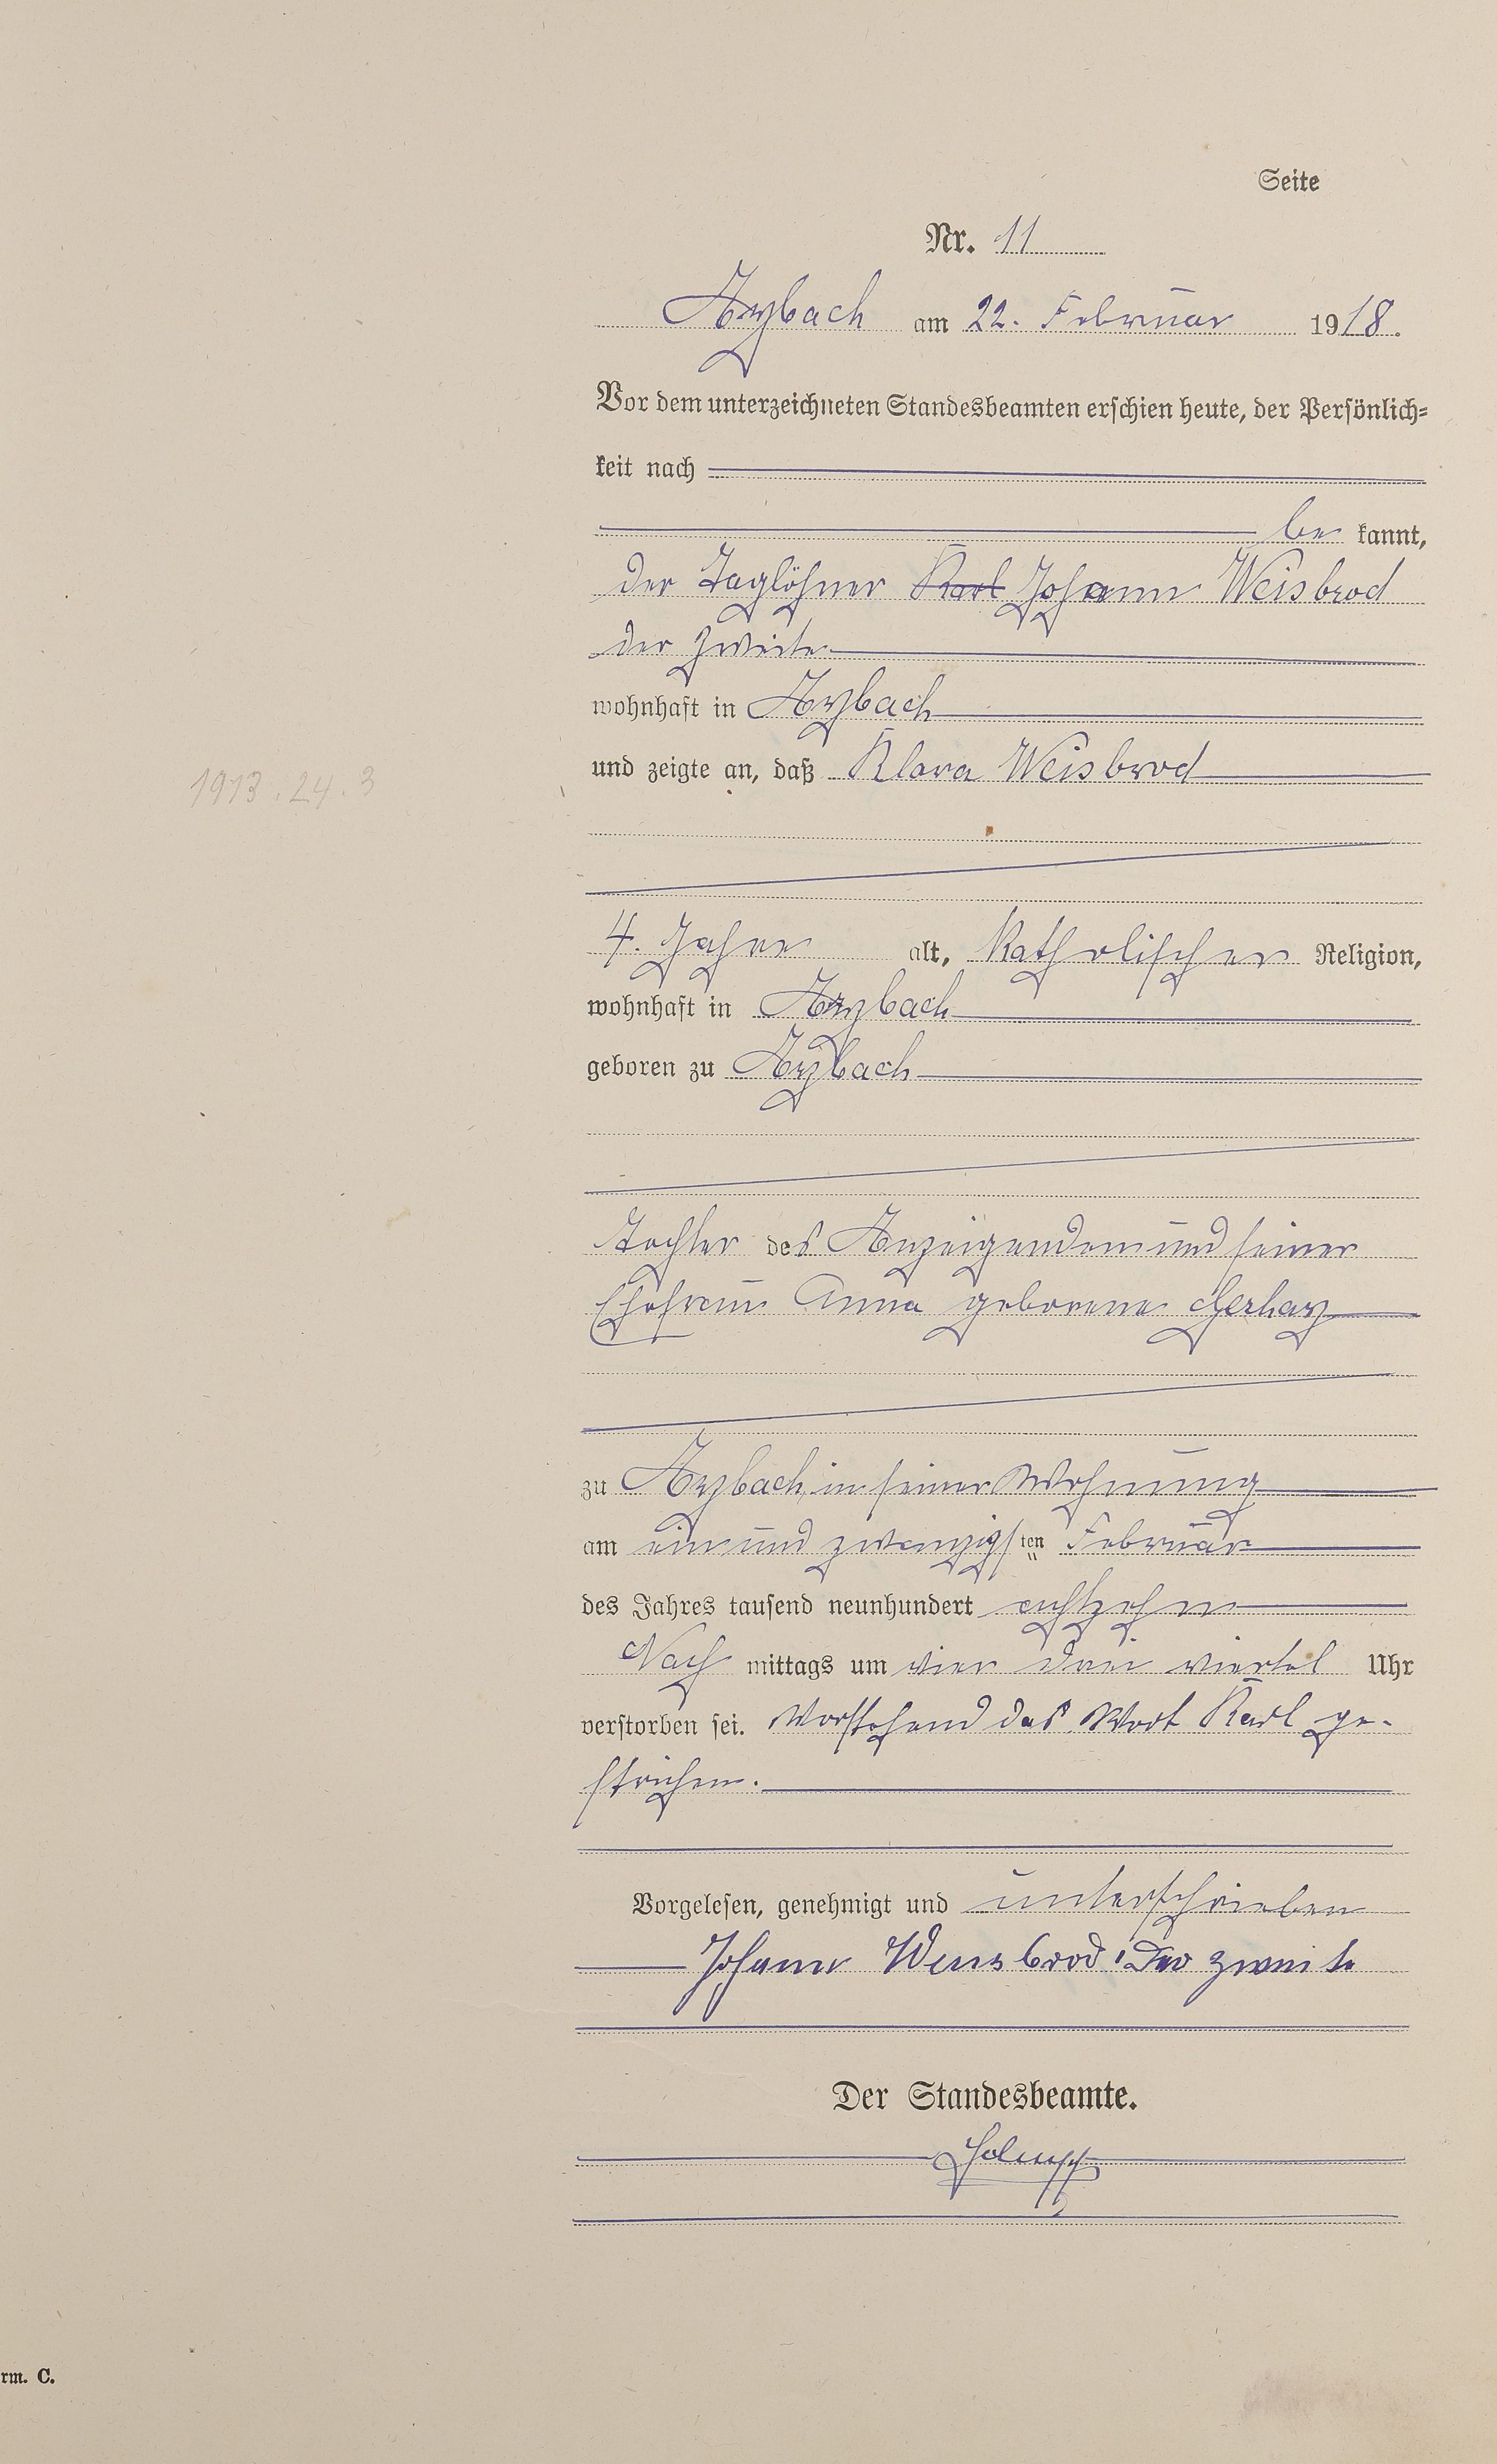 Seite
Nr. 11
Arzbach am 22. Februar 1918.
Vor dem unterzeichneten Standesbeamten erschien heute, der Persönlich-
keit nach
be kannt,
der Taglöhner Karl Johann Weisbrod
der Zweite
wohnhaft in Arzbach
und zeigte an, daß Klara Weisbrod
1913.24.3
4. Jahre alt, katholischer Religion,
wohnhaft in Arzbach
geboren zu Arzbach
Tochter des Anzeigenden und seiner
Ehefrau Anna geborene Gerharz
zu Arzbach, in seiner Wohnung
am ein und zwanzigsten Februar
des Jahres tausend neunhundert achtzehn
Nach mittags um vier drei viertel Uhr
verstorben sei. Vorstehend das Wort Karl ge-
strichen.
Vorgelesen, genehmigt und unterschrieben
Johann Weisbrod Der zweite
Der Standesbeamte.
rm. C.